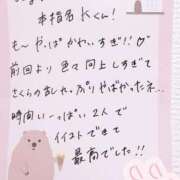 本指名 Kくん！
も〜やっぱかわいすぎ！！
前回より色々向上しすぎて
さくらの おしゃぶりやばかったネ…
時間い〜っぱい2人で
イイストできて
最高でした！！